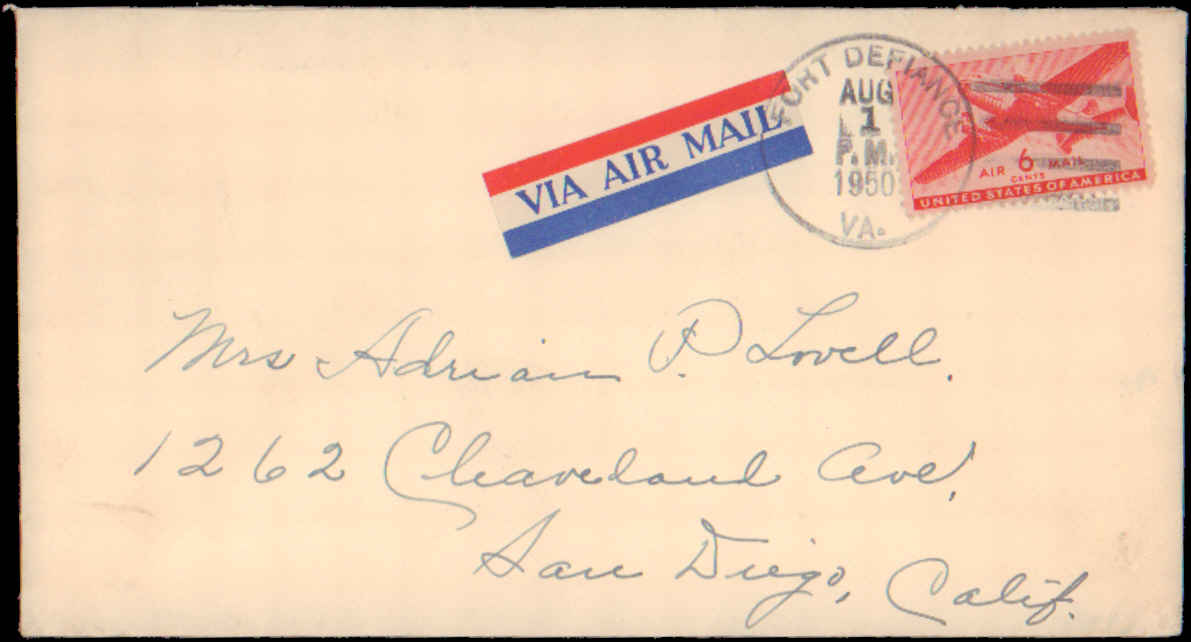 FORT DEFIANCE
AUG
1
P.M.
1950
VA.
VIA AIR MAIL
AIR 6 MAIL
CENTS
UNITED STATES OF AMERICA
Mrs Adrian P. Lovell.
1262 Cleaveland Ave,
San Diego, Calif.